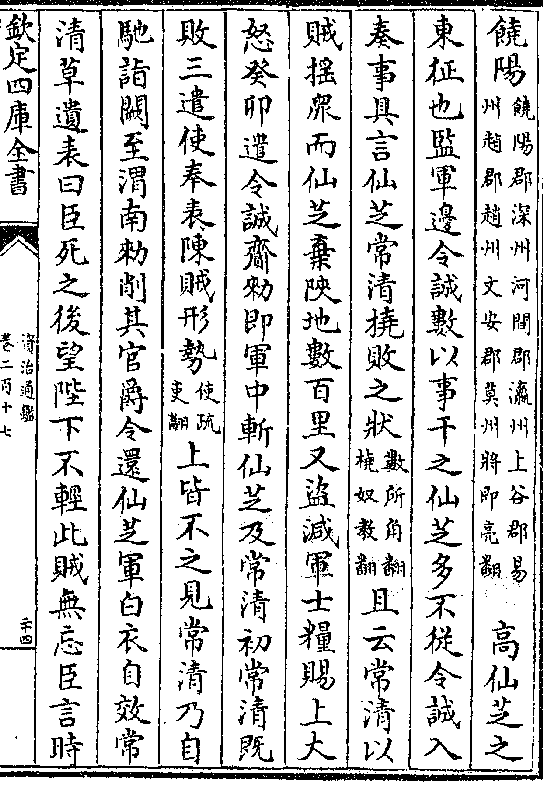 饒陽
饒陽郡深州河間郡瀛州上谷郡易
州趙郡趙州文安郡莫州將即亮翻
高仙芝之
東征也監軍邊令誠數以事干之仙芝多不從令誠入
奏事具言仙芝常清橈敗之狀
數所角翻
橈奴教翻
且云常清以
賊搖衆而仙芝棄陜地數百里又盜減軍士糧賜上大
怒癸卯遣令誠齎勑即軍中斬仙芝及常清初常清既
敗三遣使奉表陳賊形勢
使疏
吏翻
上皆不之見常清乃自
馳詣闕至渭南勑削其官爵令還仙芝軍白衣自效常
清草遺表曰臣死之後望陛下不輕此賊無忘臣言時
欽定四庫全書
資治通鑑
卷二百十七